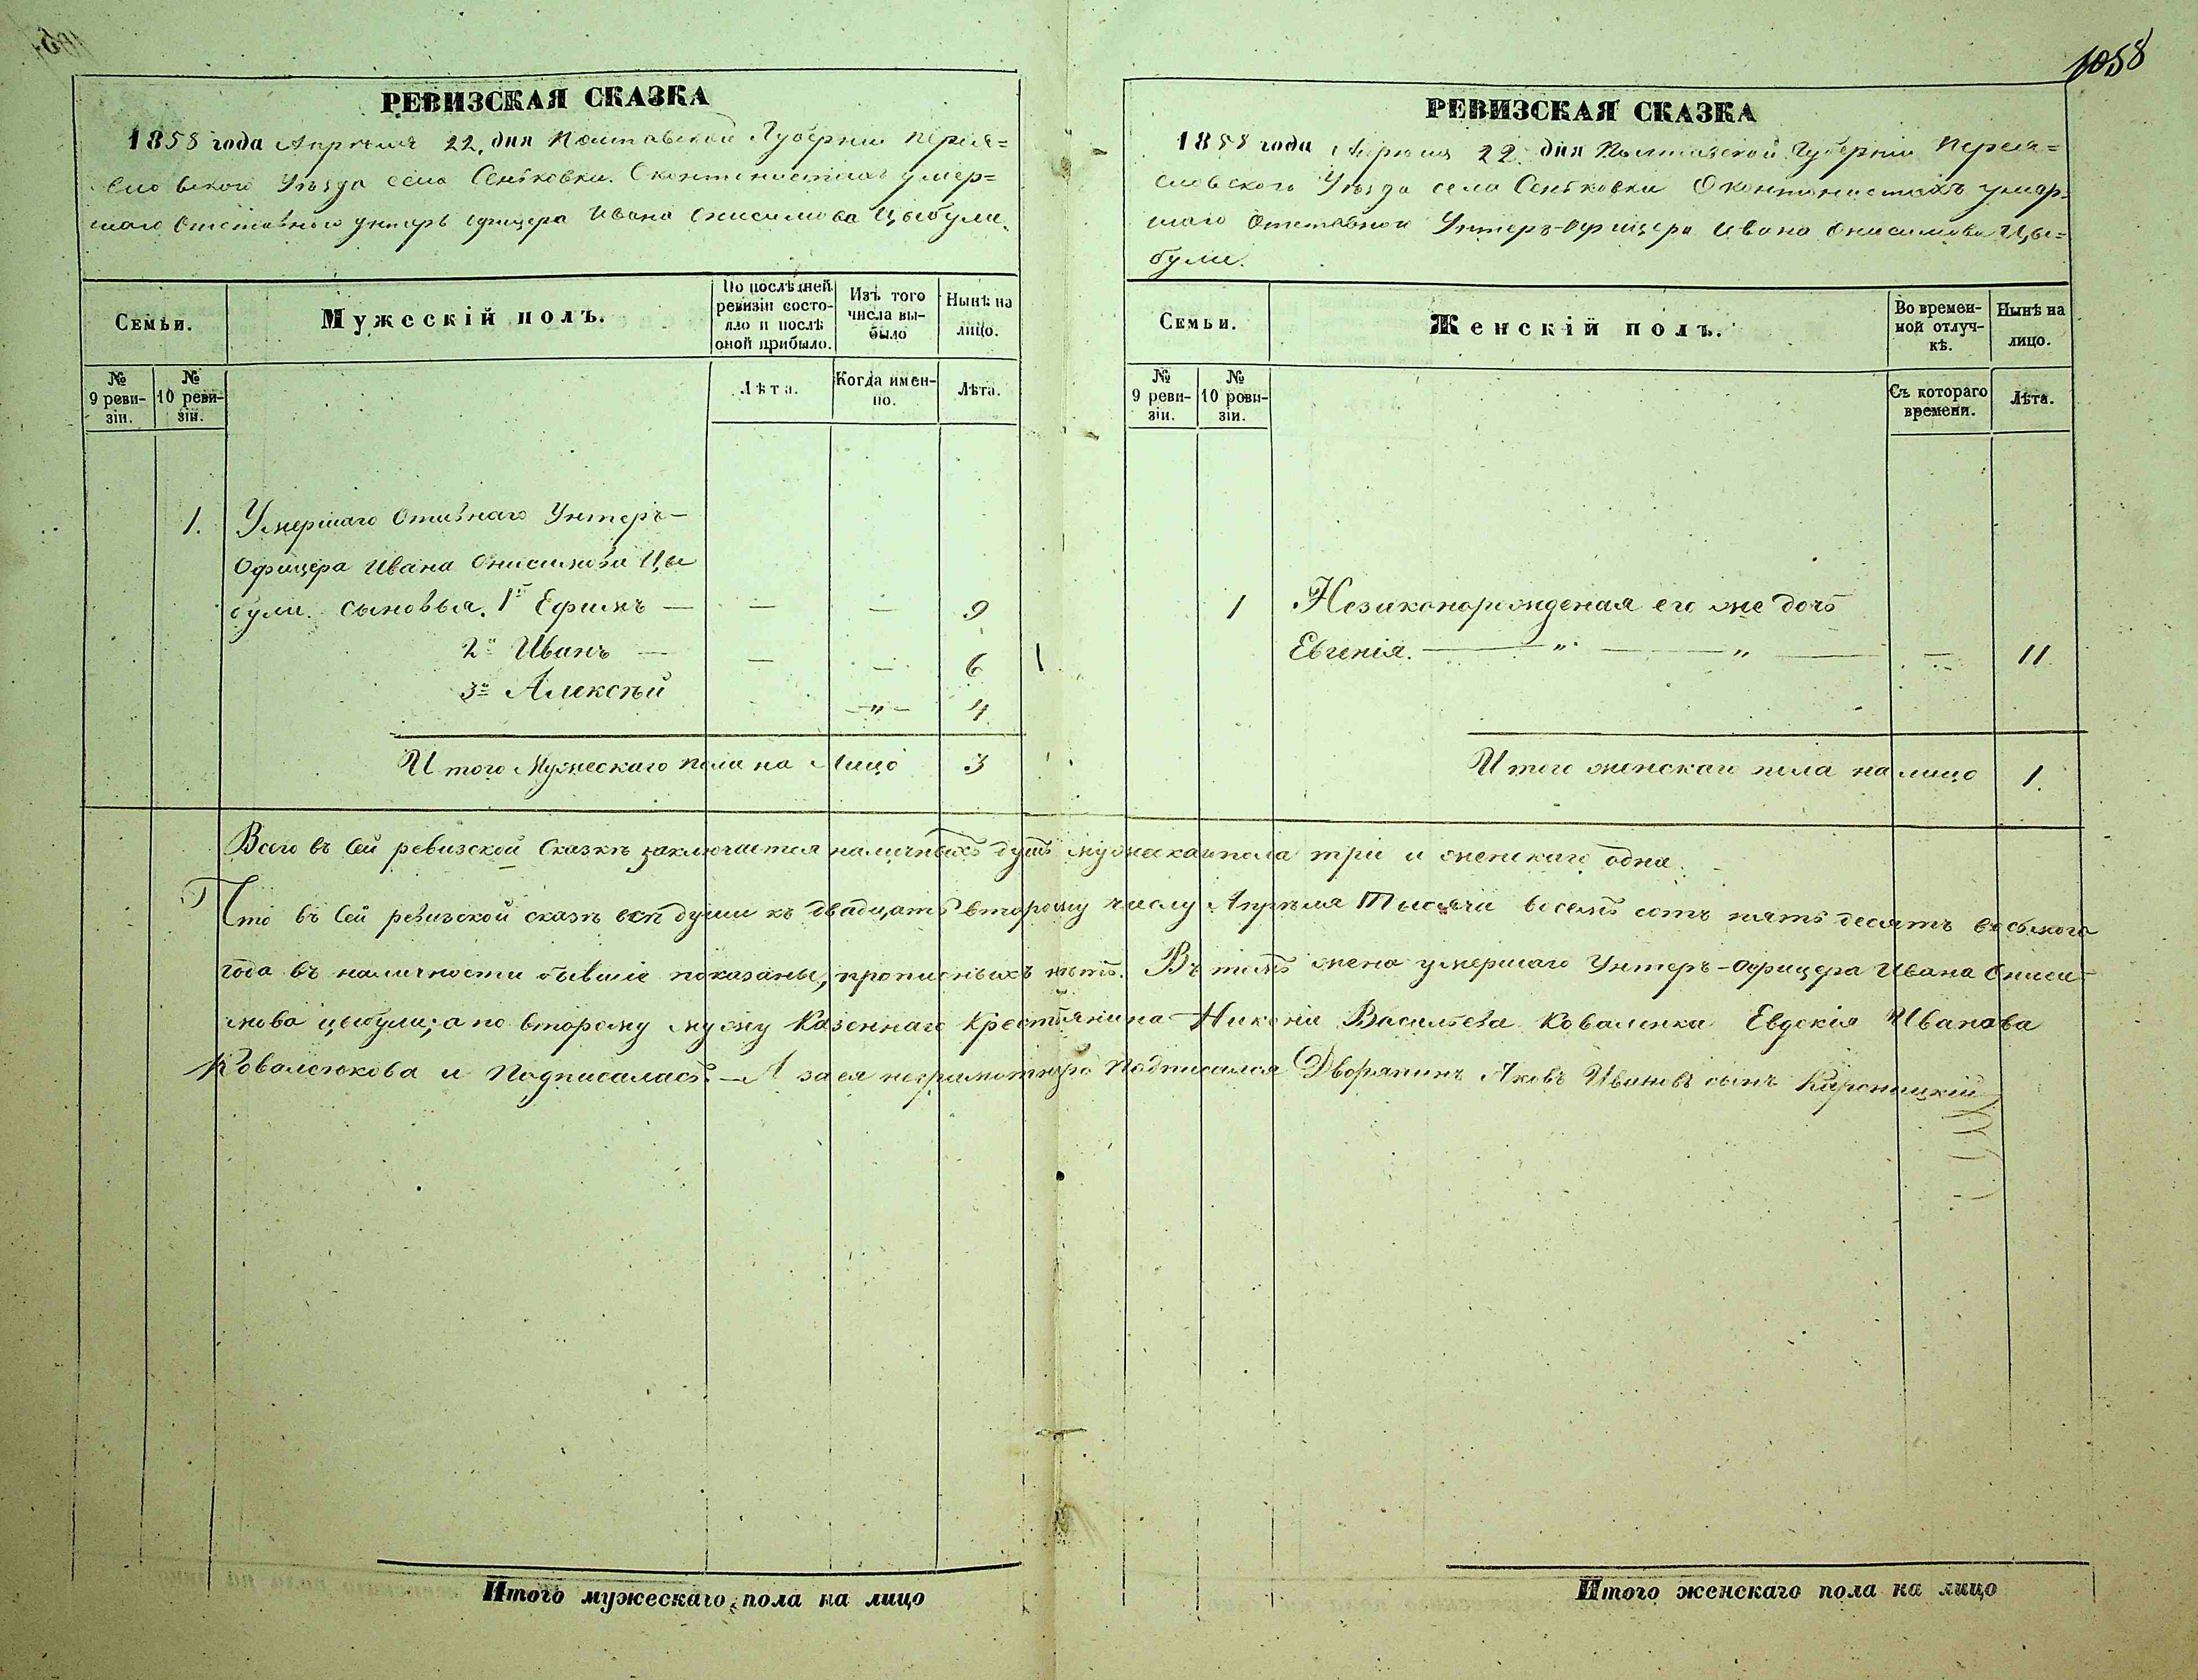 1058
РЕВИЗСКАЯ СКАЗКА
1858 года Апрѣля 22. дня Полтавской Губерніи Перея=
словского Уѣзда села Сеньковки. О кантонистахъ умер=
шаго Отставного унтеръ офицера Ивана Онисимова Цыбули.
Семьи.
Мужескій полъ.
По послѣдней ревизіи состо-
яло и послѣ оной прибыло.
Изъ того числа вы-
было
Нынѣ на лицо.
№ 9 реви-
зіи.
№ 10 реви-
зіи.
Лѣта.
Когда имен-
но.
Лѣта.
1. Умершаго Отивнаго Унтеръ-
Офицера Ивана Онисимова Цы
були. сыновья. 1й Ефимъ — — — 9
2й Иванъ — — — 6
3й Алексѣй — " — 4
Итого Мужескаго пола на Лицо 3
РЕВИЗСКАЯ СКАЗКА
1858 года Апрѣля 22. дня Полтавской Губерніи Перея=
словского Уѣзда села Сеньковки О кантонистахъ умер=
шаго Отставной Унтеръ-Офицера Ивана Онисимова Цы=
були.
Семьи.
Женскій полъ.
Во времен-
ной отлуч-
кѣ.
Нынѣ на лицо.
№ 9 реви-
зіи.
№ 10 реви-
зіи.
Съ котораго времени.
Лѣта.
1 Незаконорожденая его же дочь
Евгенія. — " — " — — 11
Итого женскаго пола на лицо 1.
Всего въ сей ревизской Сказкѣ заключается наличныхъ душъ мужескаго пола три и женскаго одна.
Что въ сей ревизской сказкѣ всѣ души къ двадцать второму числу Апрѣля Тысяча восемь сотъ пять десятъ восьмого
года въ наличности бывшіе показаны, прописныхъ нѣтъ. Въ томъ жена умершаго Унтеръ-Офицера Ивана Ониси-
мова цыбули; а по второму мужу Казеннаго Крестьянина Никонія Васильева Коваленка Евдокія Иванова
Ковалюкова и Подписалась. — А за ея неграмотную подписался Дворянинъ Яковъ Ивановъ сынъ
Итого мужескаго пола на лицо
Итого женскаго пола на лицо